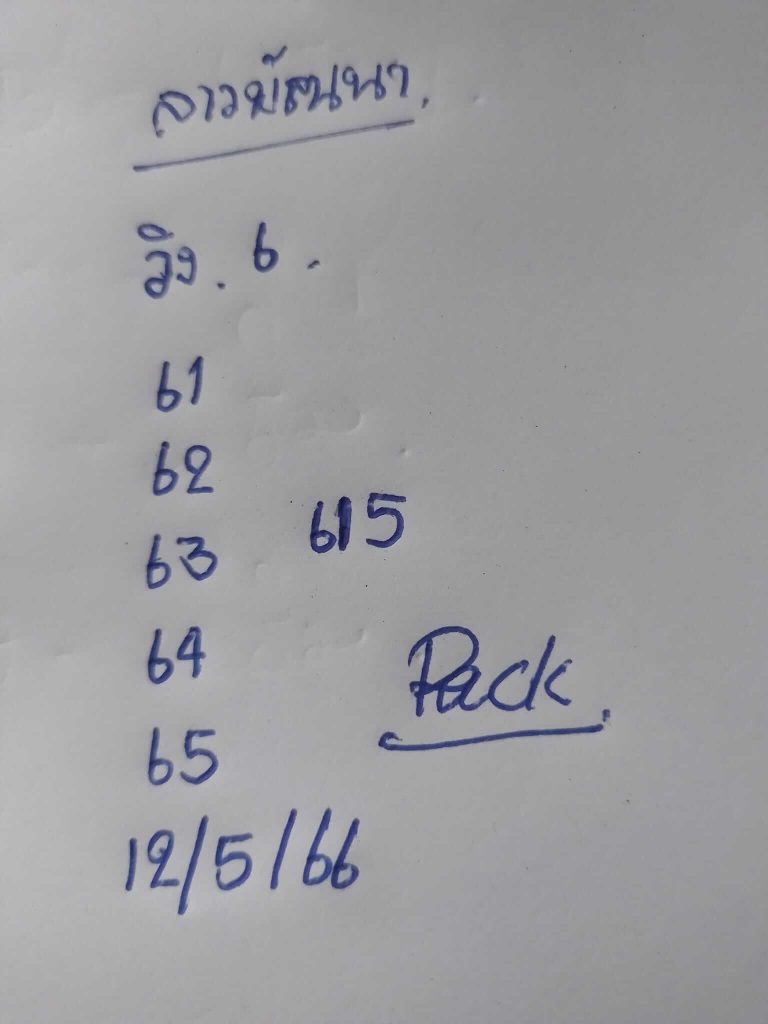 ลาวพัฒนา.
วิ่ง. 6.
61
62
63
615
64
Pack.
65
12/5/66